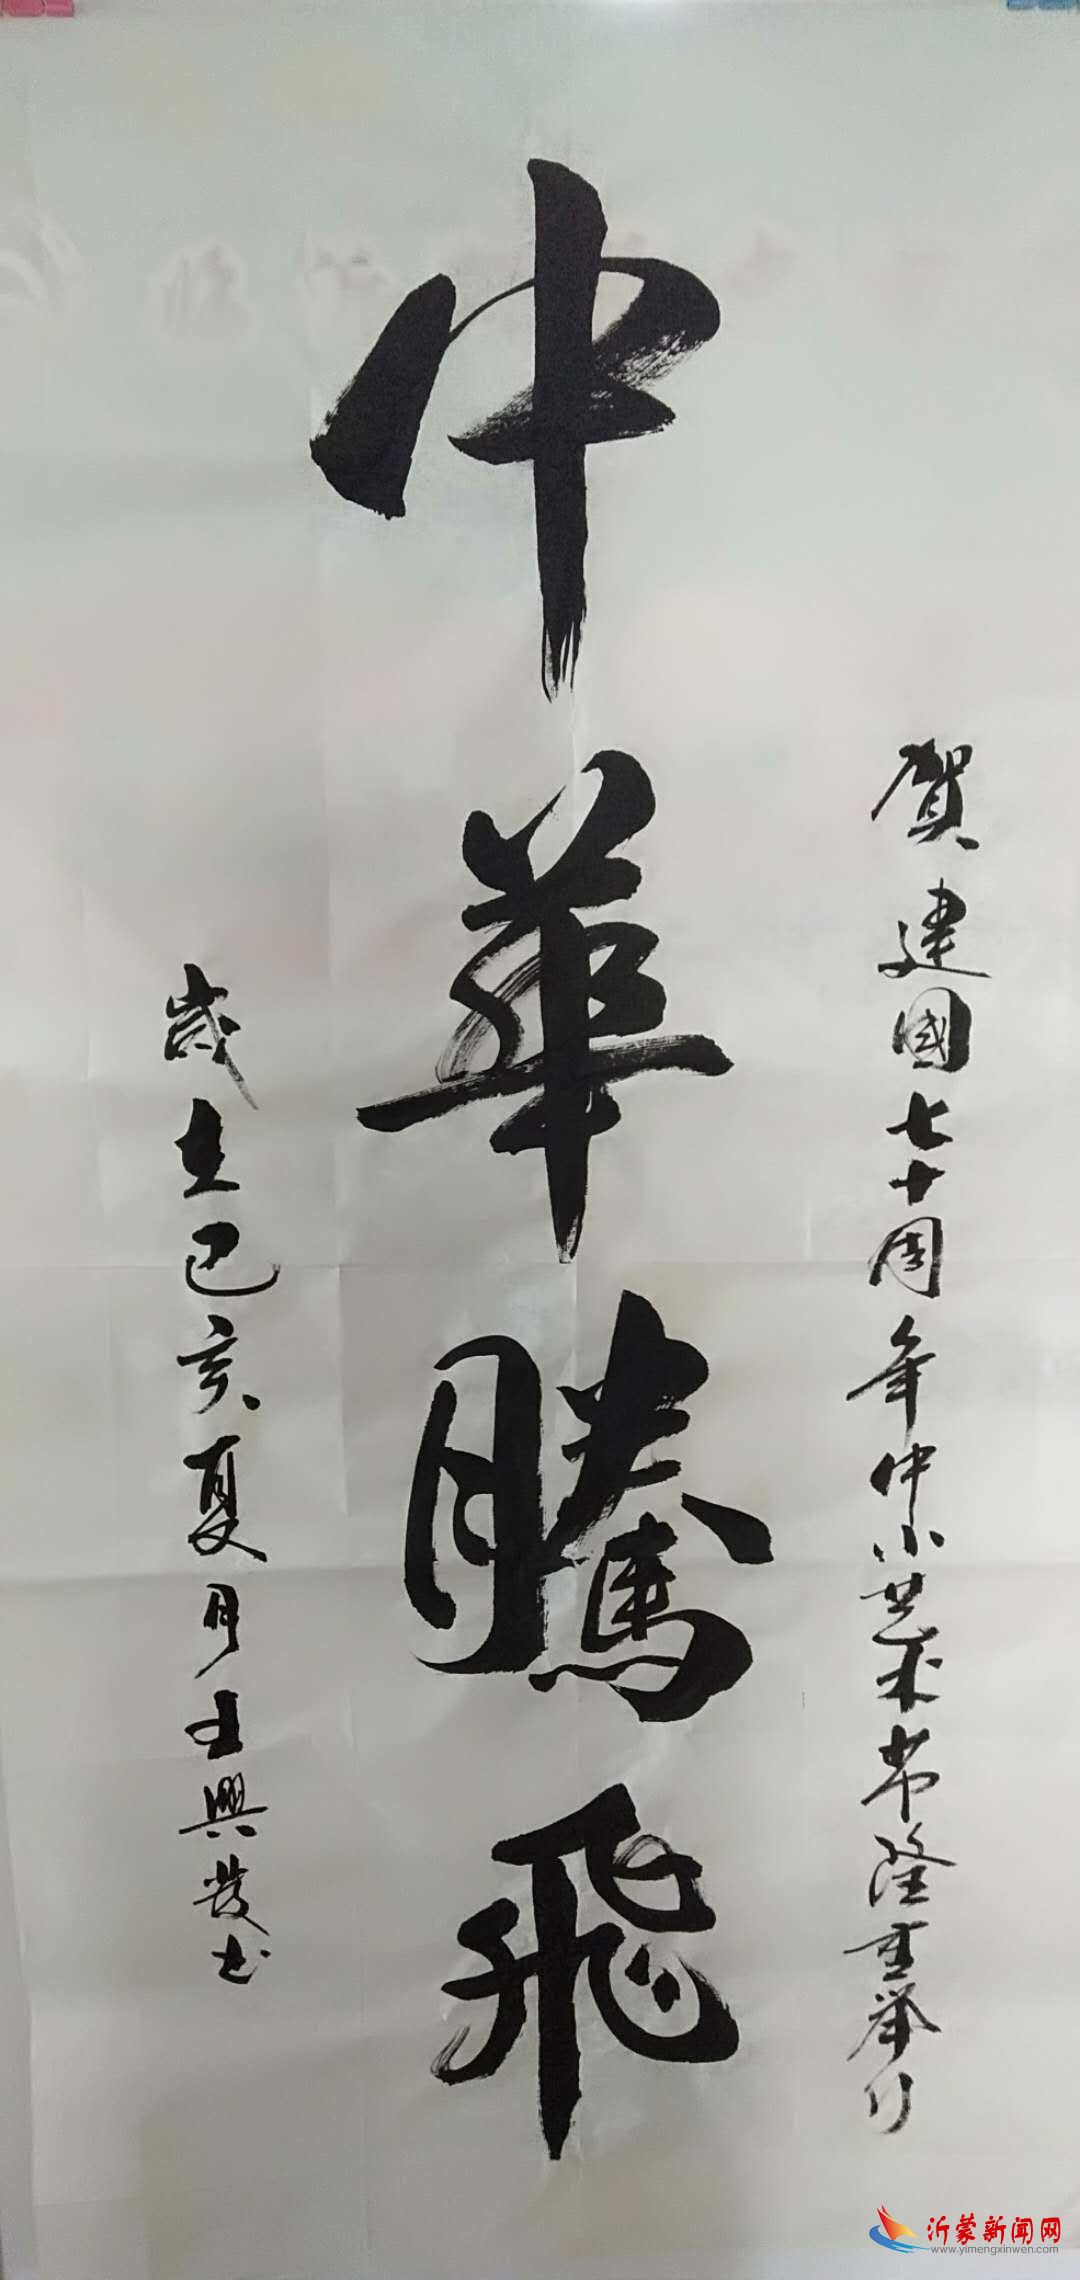 賀建國七十周年中小艺术节隆重举行
中華騰飛
歲在己亥夏月王興發书
沂蒙新闻网
www.yimengxinwen.com